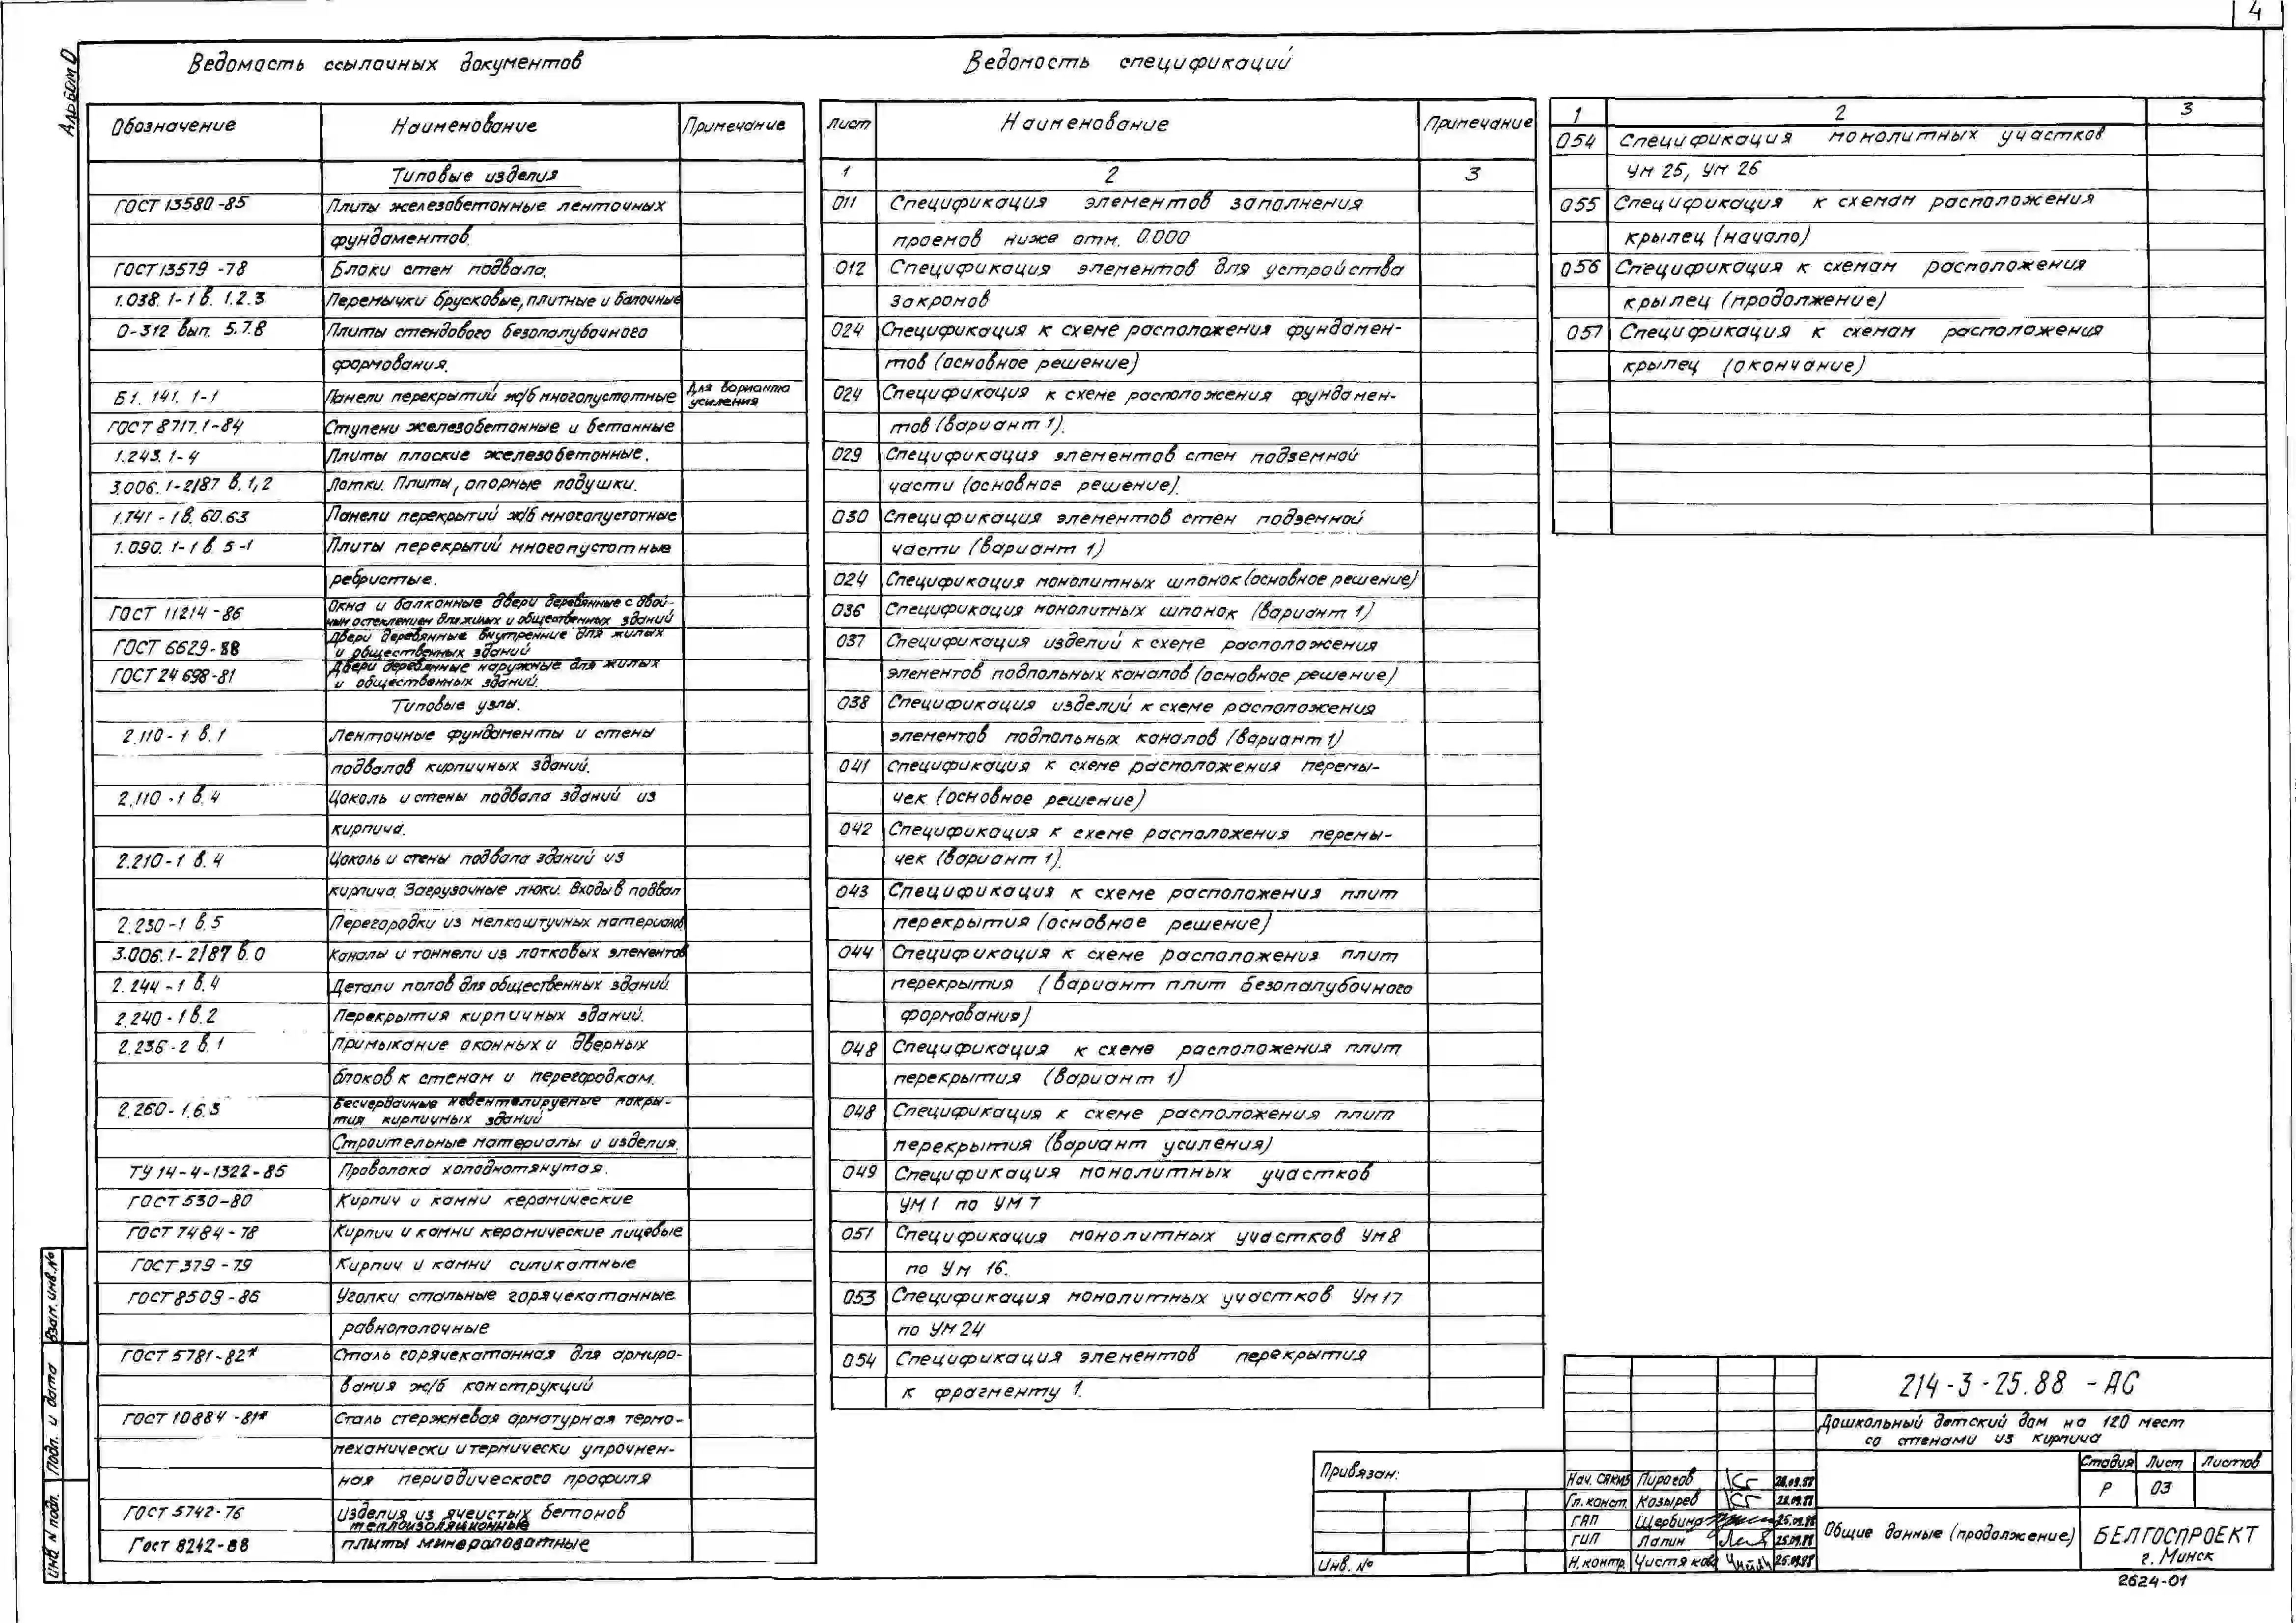 4
Альбом 0
Ведомость ссылочных документов
Обозначение Наименование Примечание
Типовые изделия
ГОСТ 13580-85 Плиты железобетонные ленточных
фундаментов.
ГОСТ 13579-78 Блоки стен подвала.
1.038.1-1 в. 1.2.3 Перемычки брусковые, плитные и балочные
0-312 вып. 5.7.8 Плиты стендового безопалубочного
формования.
Б1.141.1-1 Панели перекрытий ж/б многопустотные Для варианта
усиления
ГОСТ 8717.1-84 Ступени железобетонные и бетонные
1.243.1-4 Плиты плоские железобетонные.
3.006.1-2/87 в.1,2 Лотки. Плиты, опорные подушки.
1.141-1 в. 60.63 Панели перекрытий ж/б многопустотные
1.090.1-1 в. 5-1 Плиты перекрытий многопустотные
ребристые.
ГОСТ 11214-86 Окна и балконные двери деревянные с двой-
ным остеклением для жилых и общественных зданий
ГОСТ 6629-88 Двери деревянные внутренние для жилых
и общественных зданий
ГОСТ 24698-81 Двери деревянные наружные для жилых
и общественных зданий.
Типовые узлы.
2.110-1 в.1 Ленточные фундаменты и стены
подвалов кирпичных зданий.
2.110-1 в.4 Цоколь и стены подвала зданий из
кирпича.
2.210-1 в.4 Цоколь и стены подвала зданий из
кирпича. Загрузочные люки. Входы в подвал
2.230-1 в.5 Перегородки из мелкоштучных материалов
3.006.1-2/87 в.0 Каналы и тоннели из лотковых элементов
2.244-1 в.4 Детали полов для общественных зданий.
2.240-1 в.2 Перекрытия кирпичных зданий.
2.236-2 в.1 Примыкание оконных и дверных
блоков к стенам и перегородкам.
2.260-1.6.3 Бесчердачные невентилируемые покры-
тия кирпичных зданий
Строительные материалы и изделия.
ТУ 14-4-1322-85 Проволока холоднотянутая.
ГОСТ 530-80 Кирпич и камни керамические
ГОСТ 7484-78 Кирпич и камни керамические лицевые
ГОСТ 379-79 Кирпич и камни силикатные
ГОСТ 8509-86 Уголки стальные горячекатанные
равнополочные
ГОСТ 5781-82* Сталь горячекатанная для армиро-
вания ж/б конструкций
ГОСТ 10884-81* Сталь стержневая арматурная термо-
механически и термически упрочнен-
ная периодического профиля
ГОСТ 5742-76 Изделия из ячеистых бетонов
теплоизоляционные
Гост 8242-88 плиты минераловатные
Ведомость спецификаций
Лист Наименование Примечание
1 2 3
011 Спецификация элементов заполнения
проемов ниже отм. 0.000
012 Спецификация элементов для устройства
закромов
024 Спецификация к схеме расположения фундамен-
тов (основное решение)
024 Спецификация к схеме расположения фундамен-
тов (вариант 1).
029 Спецификация элементов стен подземной
части (основное решение).
030 Спецификация элементов стен подземной
части (вариант 1)
024 Спецификация монолитных шпонок (основное решение)
036 Спецификация монолитных шпонок (вариант 1)
037 Спецификация изделий к схеме расположения
элементов подпольных каналов (основное решение)
038 Спецификация изделий к схеме расположения
элементов подпольных каналов (вариант 1)
041 Спецификация к схеме расположения перемы-
чек (основное решение)
042 Спецификация к схеме расположения перемы-
чек (вариант 1).
043 Спецификация к схеме расположения плит
перекрытия (основное решение)
044 Спецификация к схеме расположения плит
перекрытия (вариант плит безопалубочного
формования)
048 Спецификация к схеме расположения плит
перекрытия (вариант 1)
048 Спецификация к схеме расположения плит
перекрытия (вариант усиления)
049 Спецификация монолитных участков
УМ 1 по УМ 7
051 Спецификация монолитных участков Ум 8
по Ум 16.
053 Спецификация монолитных участков Ум 17
по УМ 24
054 Спецификация элементов перекрытия
к фрагменту 1.
1 2 3
054 Спецификация монолитных участков
Ум 25, Ум 26
055 Спецификация к схемам расположения
крылец (начало)
056 Спецификация к схемам расположения
крылец (продолжение)
057 Спецификация к схемам расположения
крылец (окончание)
Взам. инв. №
Подп. и дата
Инв N подл.
Привязан:
Инв. №
214-3-25.88 -АС
Дошкольный детский дом на 120 мест
со стенами из кирпича
Стадия Лист Листов
Р 03
Нач. САКИЗ Пирогов 28.09.88
Гл. конст. Козырев 28.09.88
ГАП Щербина 25.09.88
ГИП Лапин 25.09.88
Н. контр. Чистякова 25.09.88
Общие данные (продолжение)
БЕЛГОСПРОЕКТ
г. Минск
2624-01